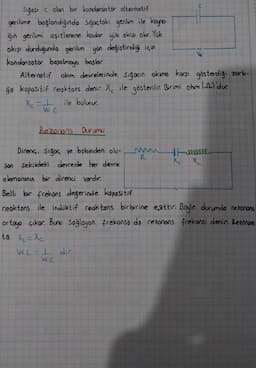 Sığası C olan bir kondansatör alternatif
gerilime bağlandığında sığacıktaki gerilim ile kayna-
ğın gerilimi eşitlenene kadar yük akışı olur. Yük
akışı durduğunda gerilim yön değiştirdiği için
kondansatör boşalmaya başlar.
Alternatif akım devrelerinde sığacın akıma karşı gösterdiği zorlu-
ğa kapasitif reaktans denir. Xc ile gösterilir. Birimi ohm (Ω)'dur.
Xc = 1/WC ile bulunur.
Rezonans Durumu
Direnç, sığaç ve bobinden olu-
şan şekildeki devrede her devre
elemanının bir direnci vardır.
R Xc XL
Belli bir frekans değerinde kapasitif
reaktans ile indüktif reaktans birbirine eşittir. Böyle durumda rezonans
ortaya çıkar. Bunu sağlayan frekansa da rezonans frekansı denir. Rezonans
ta XL = Xc
WL = 1/WC dir.